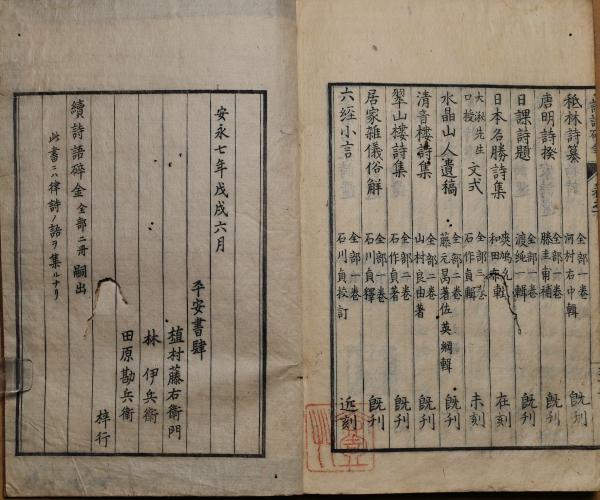 嵇林詩纂 全部一卷 河村右中輯 既刊
唐明詩揆 全部一卷 勝圭甫補 既刊
日課詩題 全部一卷 渡純一輯 既刊
日本名勝詩集 全部 和田 輯 在刻
大淑先生口授 文式 全部二卷 石作貞輯 未刻
水晶山人遺稿 全部二卷 藤元昺著 佐英綱輯 既刊
清音樓詩集 全部二卷 山村良由著 既刊
翠山樓詩集 全部一卷 石作貞著 既刊
居家雜儀俗解 全部一卷 石川貞釋 既刊
六經小言 全部一卷 石川貞校訂 近刻
安永七年戊戌六月
平安書肆
植村藤右衛門
林 伊兵衛
田原勘兵衛
梓行
續詩語碎金 全部二冊 嗣出
此書ニハ律詩ノ語ヲ集ルナリ